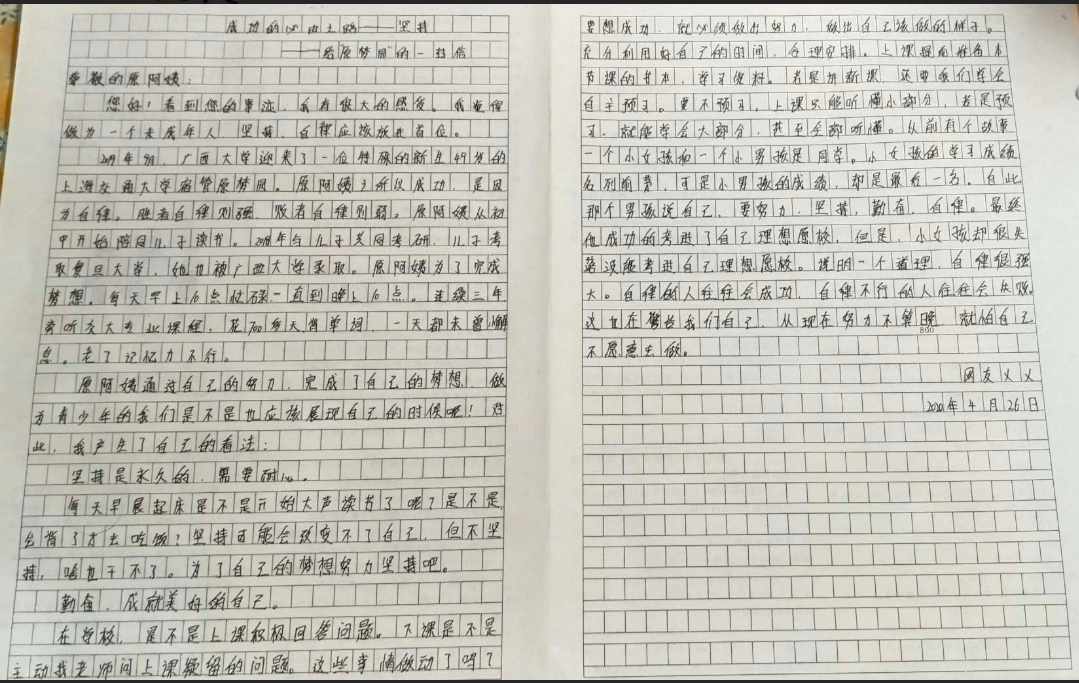 成功的必由之路——坚持
——给原梦园的一封信
尊敬的原阿姨：
您好！看到您的事迹，我有很大的感发。我觉得
做为一个未成年人，坚持、自律应该放在首位。
2019年9月，广西大学迎来了一位特殊的新生49岁的
上海交通大学宿管原梦园。原阿姨之所以成功，是因
为自律。胜者自律则强，败者自律则弱。原阿姨从初
中开始陪同儿子读书。2018年与儿子共同考研，儿子考
取复旦大学，她也被广西大学录取。原阿姨为了完成
梦想，每天早上6点忙碌一直到晚上10点。连续三年
旁听交大专业课程，花700多天背单词，一天都未曾懈
怠。老了记忆力不行。
原阿姨通过自己的努力，完成了自己的梦想，做
为青少年的我们是不是也应该展现自己的时候呢！对
此，我产生了自己的看法：
坚持是永久的，需要耐心。
每天早晨起床是不是开始大声读书了呢？是不是
会背了才去吃饭？坚持可能会改变不了自己，但不坚
持，啥也干不了。为了自己的梦想努力坚持吧。
勤奋，成就美好的自己。
在学校，是不是上课积极回答问题。下课是不是
主动找老师问上课疑留的问题。这些事情做动了吗？
要想成功，就必须做出努力，做出自己该做的样子。
充分利用好自己的时间，合理安排。上课提前准备本
节课的书本，学习资料。若是讲新课，还要我们学会
自主预习。要不预习，上课只能听懂小部分，若是预
习，就能学会大部分，甚至全部听懂。从前有个故事
一个小女孩和一个小男孩是同学。小女孩的学习成绩
名列前茅，可是小男孩的成绩，却是最后一名。自此
那个男孩说自己，要努力，坚持，勤奋，自律。最终
他成功的考进了自己理想愿校，但是，小女孩却很失
落没能考进自己理想愿校。说明一个道理，自律很强
大。自律的人往往会成功，自律不行的人往往会失败。
这也在警告我们自己，从现在努力不算晚，就怕自己
800
不愿意去做。
网友××
2020年4月26日